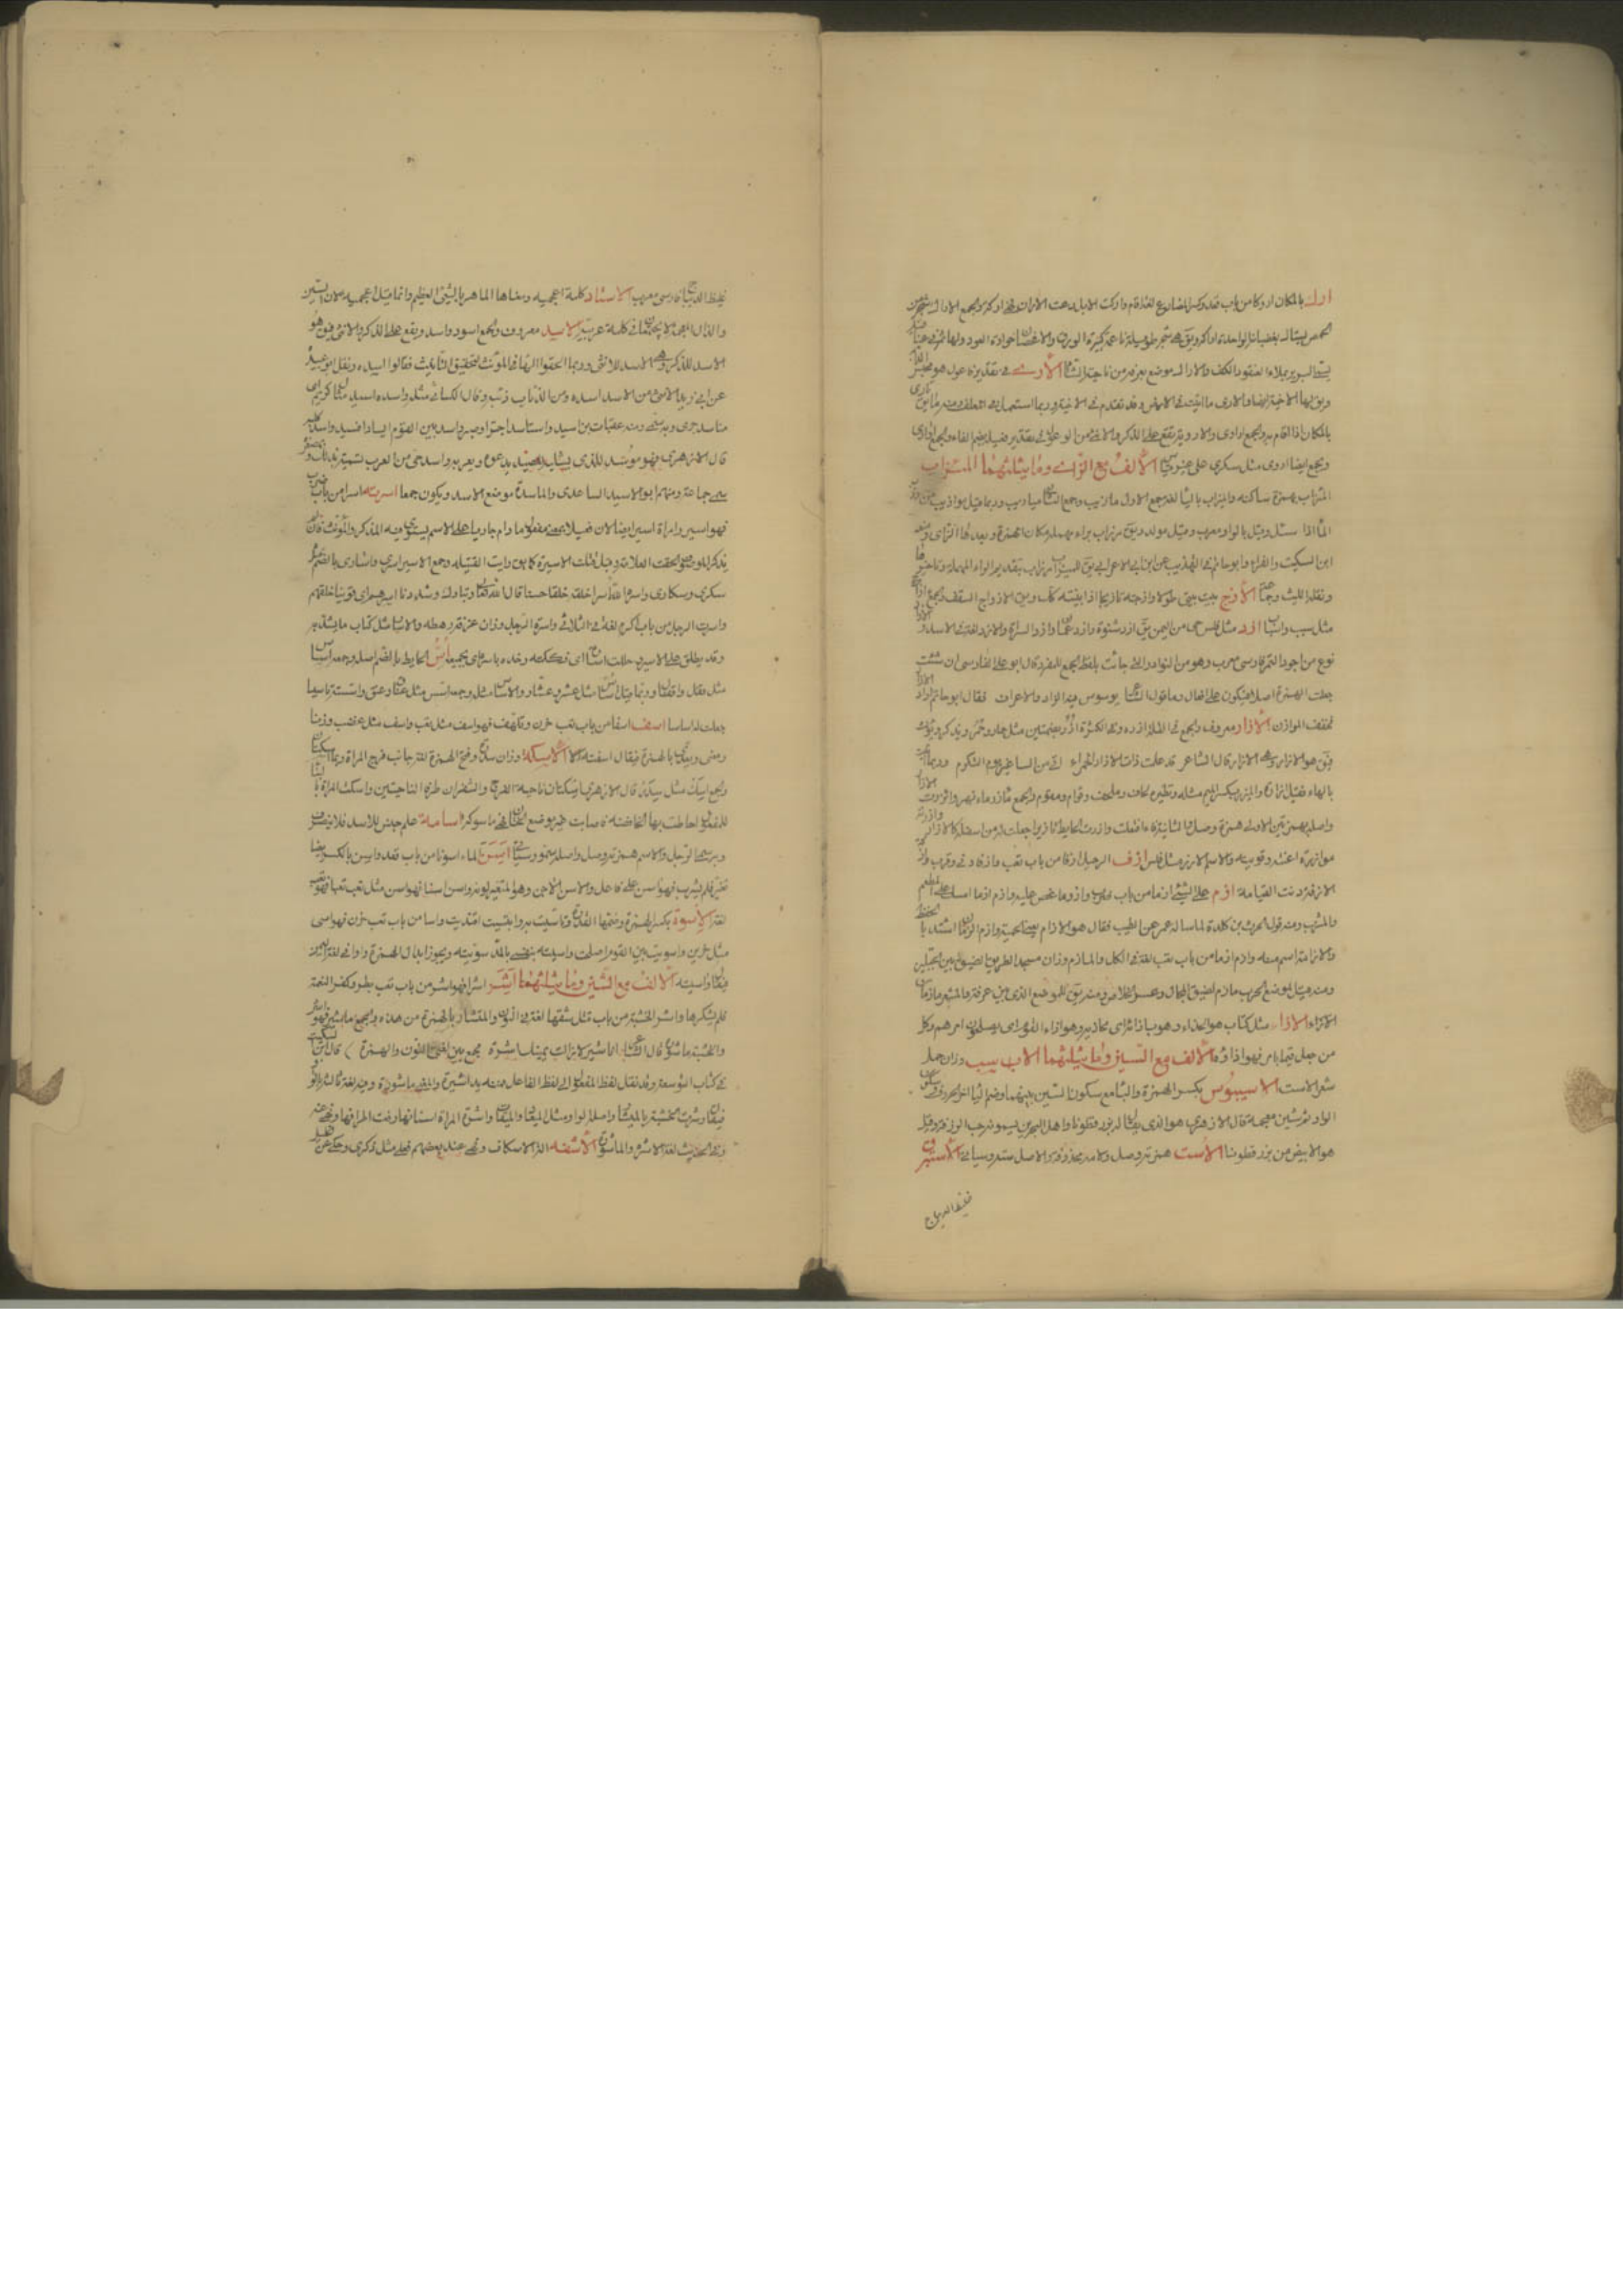 ارك بالمكان اروكا من باب قعد وكسر المضارع لغة اقام واركت الابل رعت الاراك فهي اركة والجمع الاوارك شجر من
الحمض يستاك بقضبانه الواحدة اراكة ويق هي شجر طويلة ناعمة كثيرة الورق والاغصان خوارة العود ولها ثمر في عناقيد
يسمى البرير يملا العنقود الكف والاراك موضع بعرفة من ناحية الشام الآرى في تقدير فاعول هو محبس الدابة
ويق لها الاخية ايضا والارى ما اثبت في الارض وقد تقدم في الاخية وربما استعمل الارى في المعلف وهو ماخوذ من تارى
بالمكان اذا اقام به والجمع اوارى والاروية تقع على الذكر والانثى من الوعول في تقدير فعلية بضم الفاء والجمع الاراوى
ويجمع ايضا اروى مثل سكرى على غير قياس الألف مع الزاى وما يثلثهما المئزاب
المئزاب بهمزة ساكنة والميزاب بالياء لغة وجمع الاول مازيب وجمع الثاني ميازيب وربما قيل موازيب من وزب
الماء اذا سال وقيل بالواو معرب وقيل مولد ويق مرزاب براء مهملة مكان الهمزة وبعدها الزاى ومنعه
ابن السكيت والفراء وابو حاتم وفي التهذيب عن ابن الاعرابي يق للميزاب مرزاب بتقديم الراء المهملة وتاخيرها
ونقله الليث وجماعة الأزج بيت يبنى طولا وازجته تازيجا اذا بنيته كذلك ويق الازج السقف والجمع آزاج
مثل سبب واسباب ازد مثل فلس حى من اليمن يق ازد شنوة وازد عمان وازد السراة والازد لغة في الاسد والازاذ
نوع من اجود التمر فارسى معرب وهو من النوادر التي جاءت بلفظ الجمع للمفرد قال ابو على الفارسى ان شئت
جعلت الهمزة اصلا فيكون على افعال وما قول الشاعر يغرس فيه الزاد والاعراف فقال ابو حاتم اراد الازاذ
فخفف للوزن الأزار معروف والجمع في القلة آزرة وفي الكثرة ازر بضمتين مثل حمار وحمر ويذكر ويؤنث
فيق هو الازار وهي الازار قال الشاعر قد علمت ذات الازار الحمراء اني من الساعين يوم النكراء وربما انث
بالهاء فقيل ازارة والمئزر بكسر الميم مثله ونظيره لحاف وملحف وقرام ومقرم والجمع مآزر واتزرت لبست الازار
واصله بهمزتين الاولى همزة وصل والثانية فاء افتعلت وازرت الحايط تازيرا جعلت له من اسفله كالازار وازرته
موازرة اعنته وقويته والاسم الازر مثل فلس ازف الرحيل ازفا من باب تعب وازوفا دنى وقرب وازفت
الازفة دنت القيامة ازم على الشيء ازما من باب ضرب وازوما عض عليه وازم ازما امسك عن المطعم
والمشرب ومنه قول الحرث بن كلدة لما ساله عمر عن الطب فقال هو الازم يعنى الحمية وازم الزمان اشتد بالقحط
والازمة اسم منه وازم ازما من باب تعب لغة في الكل والمازم وزان مسجد الطريق الضيق بين الجبلين
ومنه قيل لموضع الحرب مازم لضيق المجال وعسر الخلاص ومنه يق للموضع الذى بين عرفة والمشعر مازمان
الازاء الازاء مثل كتاب هو الحذاء وهو بازائه اى محاذيه وهو ازاء القوم اى يصلحون امرهم وكل
من جعل قيما بامر فهو ازاؤه الألف مع السين وما يثلثهما الاسب وزان حمل
شعر الاست الاسبيوس بكسر الهمزة والباء مع سكون السين بينهما وضم الياء اخر الحروف وسكون
الواو ثم سين مهملة قال الازهرى هو الذى يقال له بزرقطونا واهل البحرين يسمونه حب الزرقة وقيل
هو الابيض من بزرقطونا الاست همزته وصل ولامه محذوفة والاصل سته وسياتى الاستبرق
غليظ الديباج
غليظ الديباج فارسى معرب الاستاد كلمة اعجمية ومعناها الماهر بالشيء العظيم وانما قيل اعجمية لان السين
والذال المعجمة لا يجتمعان في كلمة عربية الاسد معروف والجمع اسود واسد ويقع على الذكر والانثى فيق هو
الاسد للذكر وهي الاسد للانثى وربما الحقوا الهاء في المؤنث لتحقيق التانيث فقالوا اسدة ونقل ابو عبيد
عن ابي زيد الانثى من الاسد اسدة ومن الذئاب ذئبة وقال الكسائى مثله واسد اسيد مثل كريم اى
متاسد جرى وبه سمى ومنه عتاب بن اسيد واستاسد اجترا وضرى واسد بين القوم ايسادا افسد واسد كلبه
قال الازهرى فهو موسد للذى يشليه للصيد يدعوه ويغريه واسد حى من العرب تسمية بذلك وبمصغره
سمى جماعة ومنهم ابو اسيد الساعدى والماسدة موضع الاسد ويكون جمعا اسرته اسرا من باب ضرب
فهو اسير وامراة اسير ايضا لان فعيلا بمعنى مفعول ما دام جاريا على الاسم يستوى فيه المذكر والمؤنث فان لم
يذكر الموصوف الحقت العلامة وقيل قتلت الاسيرة كما يق رايت القتيلة وجمع الاسير اسرى واسارى بالضم مثل
سكرى وسكارى واسره الله اسرا خلقه خلقا حسنا قال الله تعالى وتبارك وشددنا اسرهم اى قوينا خلقهم
واسرت الرجل من باب اكرم لغة في الثلاثى واسرة الرجل وزان غرفة رهطه والاسار مثل كتاب ما يشد به
وقد يطلق على الاسير وحللت اساره اى فككته وخذه باسره اى جميعه أس الحايط بالضم اصله وجمعه اساس
مثل قفل واقفال وربما قيل اساس مثل عش وعشاش والاساس مثله وجمعه اسس مثل عناق وعنق واسسته تاسيسا
جعلت له اساسا اسف اسفا من باب تعب حزن وتلهف فهو اسف مثل تعب واسف مثل غضب وزنا
ومعنى ويعدى بالهمزة فيقال اسفته الأسكة وزان سدرة وفتح الهمزة لغة جانب فرج المراة وهما اسكتان
والجمع اسك مثل سدر قال الازهرى الاسكتان ناحيتا الفرج والشفران طرفا الناحيتين واسكت المراة بالبناء
للمفعول اخطات بها الخافضة فاصابت غير موضع الختان فهي ماسوكة اسامة علم جنس للاسد فلا ينصرف
وبه سمى الرجل والاسم همزته وصل واصله سمو وسياتى أسن الماء اسونا من باب قعد وياسن بالكسر ايضا
تغير فلم يشرب فهو آسن على فاعل والاسن الاجن وهو المتغير لونه واسن اسنا فهو اسن مثل تعب تعبا فهو تعب
لغة الأسوة بكسر الهمزة وضمها القدوة وتاسيت به وائتسيت اقتديت واسا من باب تعب حزن فهو اسى
مثل حزين واسوت بين القوم اصلحت واسيته بنفسى بالمد سويته ويجوز ابدال الهمزة واوا في لغة اليمن
فيقال واسيته الألف مع الشين وما يثلثهما أشر اشرا فهو اشر من باب تعب بطر وكفر النعمة
فلم يشكرها واشر الخشبة من باب قتل شقها لغة في النون والمئشار بالهمزة من هذه والجمع ماشير فهو اشر
والخشبة ماشورة قال الشاعر اناشير لا زالت يمينك اشرة يجمع بين لغتى النون والهمزة قال ابن السكيت
في كتاب التوسعة وقد نقل لفظ المفعول الى لفظ الفاعل منه يد اشرة والمعنى ماشورة وفيه لغة ثالثة بالواو
فيقال وشرت الخشبة بالميشار واصله الواو مثل الميقات والميعاد واشرت المراة اسنانها رققت اطرافها ونهى عنه
وفي الحديث لعنت الاشرة والماشورة الأشفى الة الاسكاف وهي عند بعضهم فعلى مثل ذكرى وحكى عن الخليل